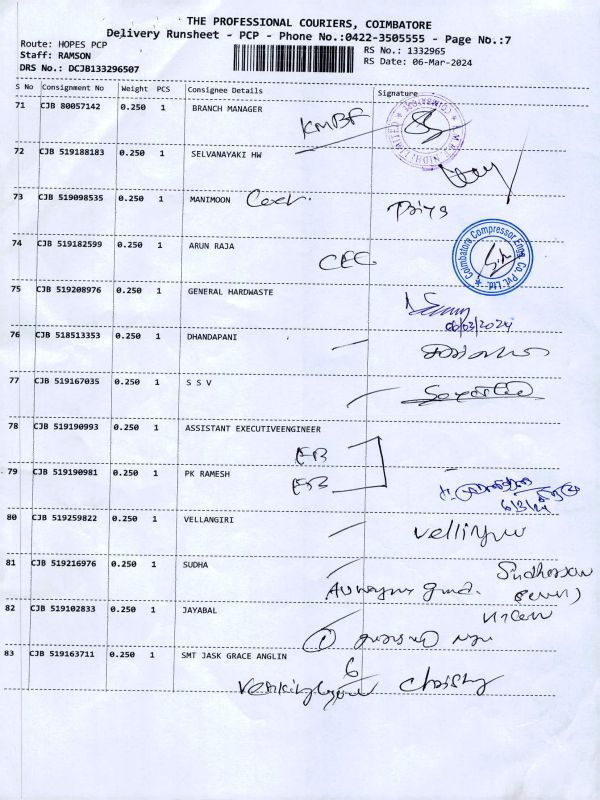 THE PROFESSIONAL COURIERS, COIMBATORE
Delivery Runsheet - PCP - Phone No.:0422-3505555 - Page No.:7
Route: HOPES PCP
Staff: RAMSON
DRS No.: DCJB133296507
RS No.: 1332965
RS Date: 06-Mar-2024
S No Consignment No Weight PCS Consignee Details Signature
71 CJB 80057142 0.250 1 BRANCH MANAGER
KMBF
72 CJB 519188183 0.250 1 SELVANAYAKI HW
73 CJB 519098535 0.250 1 MANIMOON
Priya
74 CJB 519182599 0.250 1 ARUN RAJA
CEC
Coimbatore Compressor Engg. Co. Pvt. Ltd.
75 CJB 519208976 0.250 1 GENERAL HARDWASTE
06/03/2024
76 CJB 518513353 0.250 1 DHANDAPANI
77 CJB 519167035 0.250 1 S S V
78 CJB 519190993 0.250 1 ASSISTANT EXECUTIVEENGINEER
EB
79 CJB 519190981 0.250 1 PK RAMESH
EB
6/3/24
80 CJB 519259822 0.250 1 VELLANGIRI
81 CJB 519216976 0.250 1 SUDHA
82 CJB 519102833 0.250 1 JAYABAL
83 CJB 519163711 0.250 1 SMT JASK GRACE ANGLIN
6